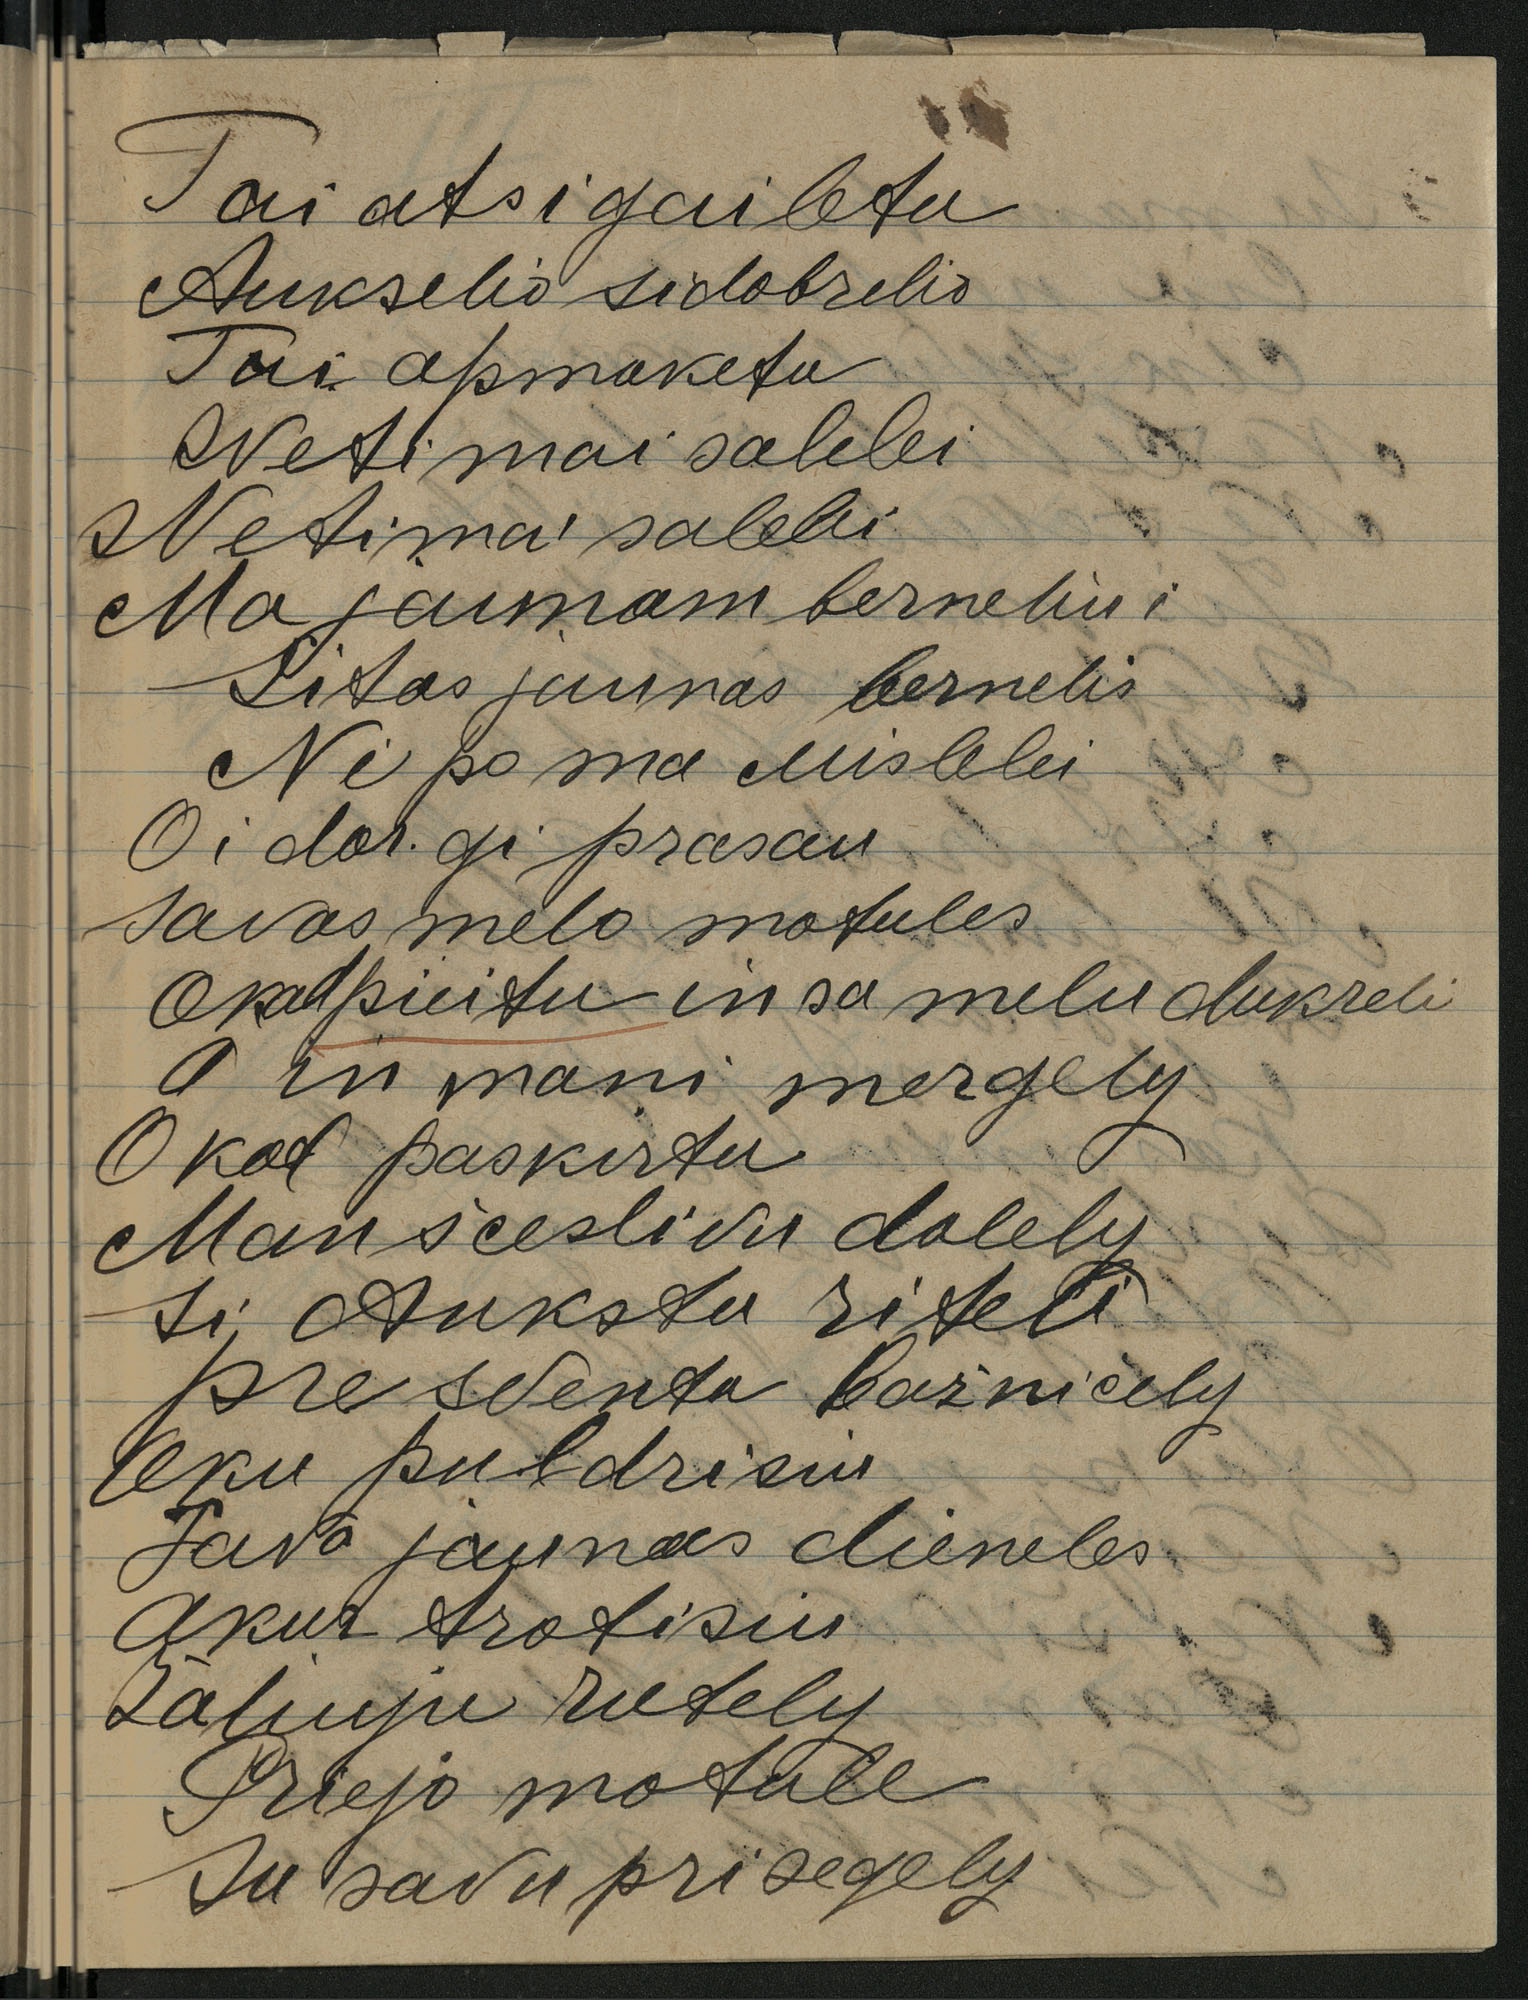 Tai atsigailetu
Aukselio sidobrelio
Tai apmoketu
Netimai salelei
Netimai salelei
Ma jaunam berneliui
Šitas jaunas bernelis
Ni po ma mislelei
Oi dar gi prasau
savas melo motules
Okad pieitu in sa melu dukreli
O in mani mergely
O kad paskirtu
Man šceslivu dalely
Ši Aukstu riteli
pre sventa bažnicely
Oku puldrisiu
Tavo jaunas dieneles
Akur trotisiu
Žaliuju rutely
Priejo motule
Su savu prisegely